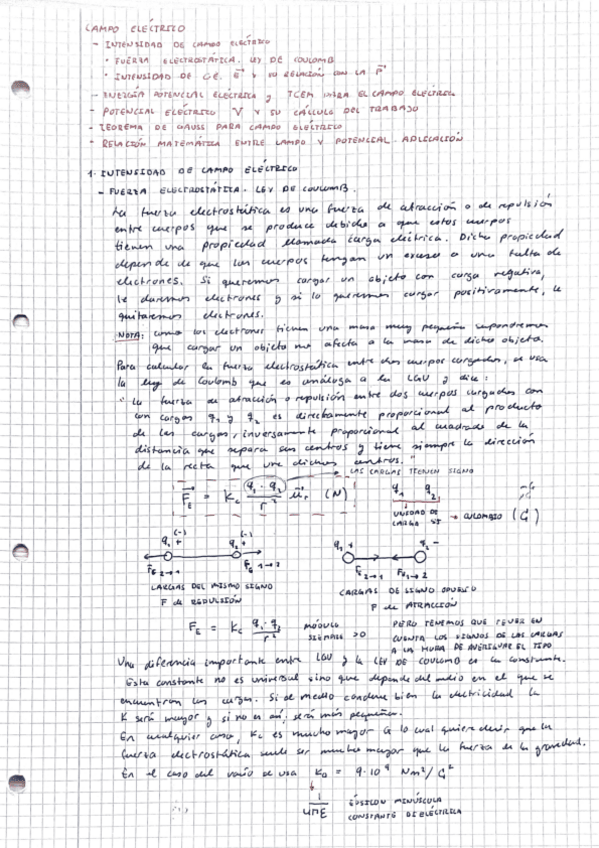 CAMPO ELÉCTRICO
- INTENSIDAD DE CAMPO ELÉCTRICO
· FUERZA ELECTROSTÁTICA. LEY DE COULOMB
· INTENSIDAD DE C.E. E⃗ Y SU RELACIÓN CON LA F⃗
- ENERGÍA POTENCIAL ELÉCTRICA y TCEM PARA EL CAMPO ELÉCTRICO
- POTENCIAL ELÉCTRICO V Y SU CÁLCULO DEL TRABAJO
- TEOREMA DE GAUSS PARA CAMPO ELÉCTRICO
- RELACIÓN MATEMÁTICA ENTRE CAMPO Y POTENCIAL. APLICACIÓN
1. INTENSIDAD DE CAMPO ELÉCTRICO
- FUERZA ELECTROSTÁTICA. LEY DE COULOMB.
La fuerza electrostática es una fuerza de atracción o de repulsión
entre cuerpos que se produce debido a que estos cuerpos
tienen una propiedad llamada carga eléctrica. Dicha propiedad
depende de que los cuerpos tengan un exceso o una falta de
electrones. Si queremos cargar un objeto con carga negativa,
le daremos electrones y si lo queremos cargar positivamente, le
quitaremos electrones.
NOTA: como los electrones tienen una masa muy pequeña supondremos
que cargar un objeto no afecta a la masa de dicho objeto.
Para calcular la fuerza electrostática entre dos cuerpos cargados, se usa
la ley de Coulomb que es análoga a la LGU y dice:
"La fuerza de atracción o repulsión entre dos cuerpos cargados con
con cargas q₁ y q₂ es directamente proporcional al producto
de las cargas, inversamente proporcional al cuadrado de la
distancia que separa sus centros y tiene siempre la dirección
de la recta que une dichos centros."
→ LAS CARGAS TIENEN SIGNO
F⃗E = Kc q₁ · q₂ / r² u⃗r (N)
q₁ q₂
UNIDAD DE CARGA SI → CULOMBIO (C)
(-) (-)
q₁ + q₂ +
F⃗E 2→1 F⃗E 1→2
CARGAS DEL MISMO SIGNO
F de REPULSIÓN
q₁ + q₂ -
FE 2→1 FE 1→2
CARGAS DE SIGNO OPUESTO
F de ATRACCIÓN
FE = Kc q₁ · q₂ / r²
MÓDULO SIEMPRE >0
PERO TENEMOS QUE TENER EN
CUENTA LOS SIGNOS DE LAS CARGAS
A LA HORA DE AVERIGUAR EL TIPO
Una diferencia importante entre LGU y la LEY DE COULOMB es la constante.
Esta constante no es universal sino que depende del medio en el que se
encuentran las cargas. Si el medio conduce bien la electricidad la
K será mayor y si no es así, será más pequeña.
En cualquier caso, Kc es mucho mayor G lo cual quiere decir que la
fuerza electrostática suele ser mucho mayor que la fuerza de la gravedad.
En el caso del vacío se usa K₀ = 9·10⁹ Nm²/C²
1 / 4πε
ÉPSILON MINÚSCULA
CONSTANTE DIELÉCTRICA